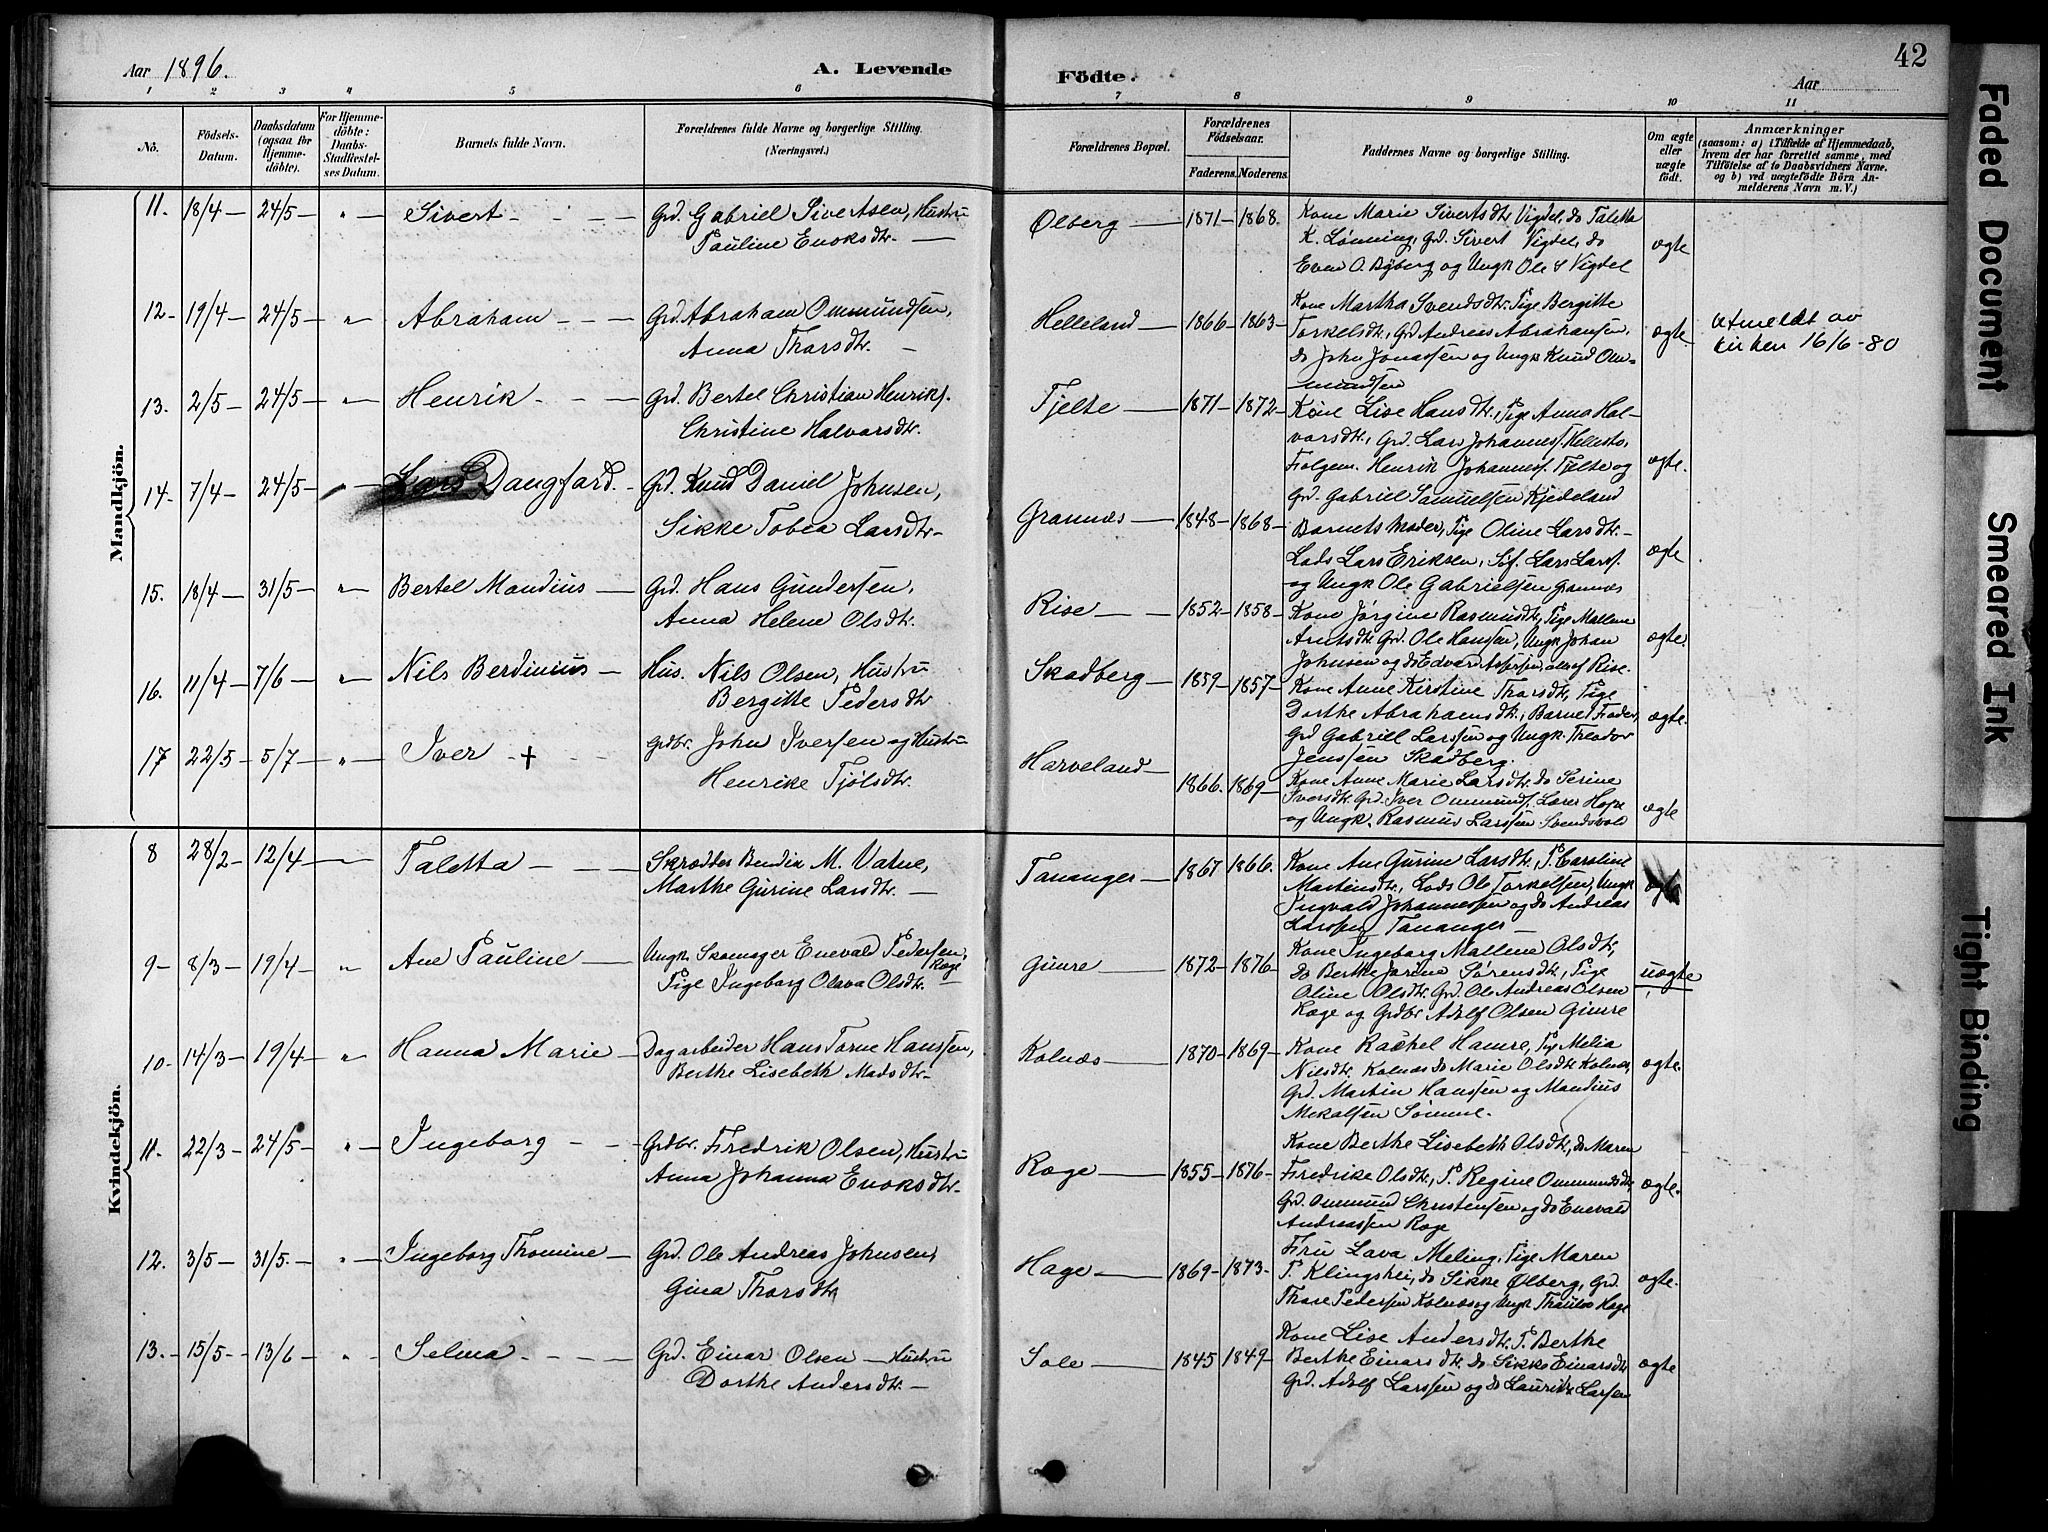 42
Aar 1896.
A. Levende Födte.
Aar
1 2 3 4 5 6 7 8 9 10 11
No.
Födsels-Datum.
Daabsdatum (ogsaa for Hjemmedöbte).
For Hjemmedöbte: Daabs-Stadfæstelses Datum.
Barnets fulde Navn.
Forældrenes fulde Navne og borgerlige Stilling. (Næringsvei.)
Forældrenes Bopæl.
Forældrenes Födselsaar.
Faderens. Moderens.
Faddernes Navne og borgerlige Stilling.
Om ægte eller uægte födt.
Anmærkninger
(saasom: a) i Tilfælde af Hjemmedaab, hvem der har forrettet samme, med Tilföielse af to Daabsvidners Navne, og b) ved uægtefödte Börn Anmelderens Navn m. V.)
Mandkjön.
11. 18/4 24/5 " Sivert Grd. Gabriel Sivertsen, Hustru
Pauline Enoksdtr.
Ølberg 1871 1868.
Kone Marie Sivertsdtr. Vigdel, do Taletta
K. Lønning, Grd. Sivert Vigdel, do
Even O. Byberg og Ungk Ole S Vigdel
ægte
12 19/4 24/5 " Abraham Grd. Abraham Ommundsen,
Anna Thorsdtr.
Helleland 1866 1863
Kone Martha Svendsdtr. Pige Bergitte
Torkelsdtr., Grd Andreas Abrahamsen,
do John Jonassen og Ungk Knud Om-
mundsen
ægte.
Utmeldt av
kirken 16/6-80
13. 2/5 24/5 " Henrik Grd. Bertel Christian Henriks.
Christine Halvorsdtr.
Tjelte 1871 1872
Kone Lise Hansdtr., Pige Anna Hal-
vorsdtr., Grd. Lars Johannes. Hellestø,
Henrik Johanness. Tjelte og
Grd. Gabriel Samuelsen Kjedeland
ægte.
14 7/4 24/5 " Lars Daugfard. Grd. Knud Daniel Johnsen,
Sikke Tobea Larsdtr
Grannæs 1848 1868
Barnets Moder, Pige Oline Larsdtr.
Lods Lars Eriksen, Søf. Lars Larss.
og Ungk Ole Gabrielsen Grannæs
ægte
15. 18/4 31/5 " Bertel Mandius Grd. Hans Gundersen,
Anna Helene Olsdtr.
Rise 1852 1858
Kone Jørgine Rasmusdtr, Pige Mallene
Arntsdtr. Grd. Ole Hanssen, Ungk Johan
Johnsen og do Edvard Assersen, alle af Rise.
ægte.
16. 11/4 7/6 " Nils Berdinius Hus. Nils Olsen, Hustru
Bergitte Pedersdtr
Skadberg 1859 1857
Kone Anne Kirstine Thorsdtr, Pige
Dorthe Abrahamsdtr., Barnets Fader,
Grd Gabriel Larssen og Ungk. Theodor
Jenssen Skadberg.
ægte.
17 22/5 5/7 " Iver + Grdbr. John Iversen og Hustru
Henrike Tjølsdtr.
Harveland 1866. 1869
Kone Anne Marie Larsdtr, do Serine
Iversdtr. Grd. Iver Ommunds. Lærer Hope
og Ungk. Rasmus Larssen Svendsvold
ægte
Kvindekjön.
8 28/2 12/4 Taletta Skrædder Bendix M. Vatne,
Marthe Gurine Larsdtr.
Tananger 1867 1866.
Kone Ane Gurine Larsdtr., P. Caroline
Martinsdtr., Lods Ole Torkelsen, Ungk
Ingvald Johannessen og do Andreas
Larssen Tananger
ægte
9 8/3 19/4 " Ane Pauline Ungk Skomager Enevald Pedersen, Ræge
Pige Ingeborg Olava Olsdtr.
Gimre 1872 1876
Kone Ingeborg Mallene Olsdtr,
do Berthe Jorine Sørensdtr, Pige
Oline Olsdtr. Grd. Ole Andreas Olsen
Ræge og Grdbr Adolf Olsen Gimre
uægte
10. 14/3 19/4 " Hanna Marie Dagarbeider Hans Torne Hanssen,
Berthe Lisebeth Madsdtr
Kolnæs 1870 1869
Kone Rachel Hamre, Pige Melia
Nilsdtr. Kolnæs do Marie Olsdtr Kolnæs,
Grd. Martin Hanssen og Mandius
Mekalsen Sømme.
ægte.
11. 22/3 24/5 " Ingeborg Grdbr. Fredrik Olsen, Hustru
Anna Johanna Enoksdtr.
Ræge 1855 1876
Kone Berthe Lisebeth Olsdtr, do Maren
Fredrike Olsdtr., P. Regine Ommundsdtr,
Grd. Ommund Christensen og do Enevald
Andreassen Ræge
ægte.
12. 3/5 31/5. " Ingeborg Thomine Grd. Ole Andreas Johnsen,
Gina Thorsdtr
Hage 1869 1873
Fru Lava Meling, Pige Maren
P. Klingshei, do Sikke Ølberg, Grd.
Thore Pedersen Kolnæs og Ungk Hage
ægte.
13. 15/5 13/6 " Selma Grd. Einar Olsen Hustru
Dorthe Andersdtr.
Sole 1845 1849
Kone Lise Andersdtr. P. Berthe
Berthe Einarsdtr. do Sikke Einarsdtr
Grd. Adolf Larssen og do Lauritz Larsen
ægte
Faded Document
Smeared Ink
Tight Binding